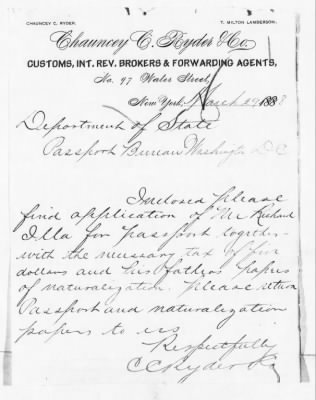 CHAUNCEY C. RYDER. T. MILTON LAMBERSON.
Chauncey C. Ryder & Co.
CUSTOMS, INT. REV. BROKERS & FORWARDING AGENTS,
No. 97 Water Street,
New York, March 29 1888
Department of State
Passport Bureau Washington D.C
Inclosed please
find application of Mr Richard
Illa for passport together
with the necessary tax of five
dollars and his fathers papers
of naturalization. please return
Passport and naturalization
papers to us
Respectfully
C C Ryder & Co